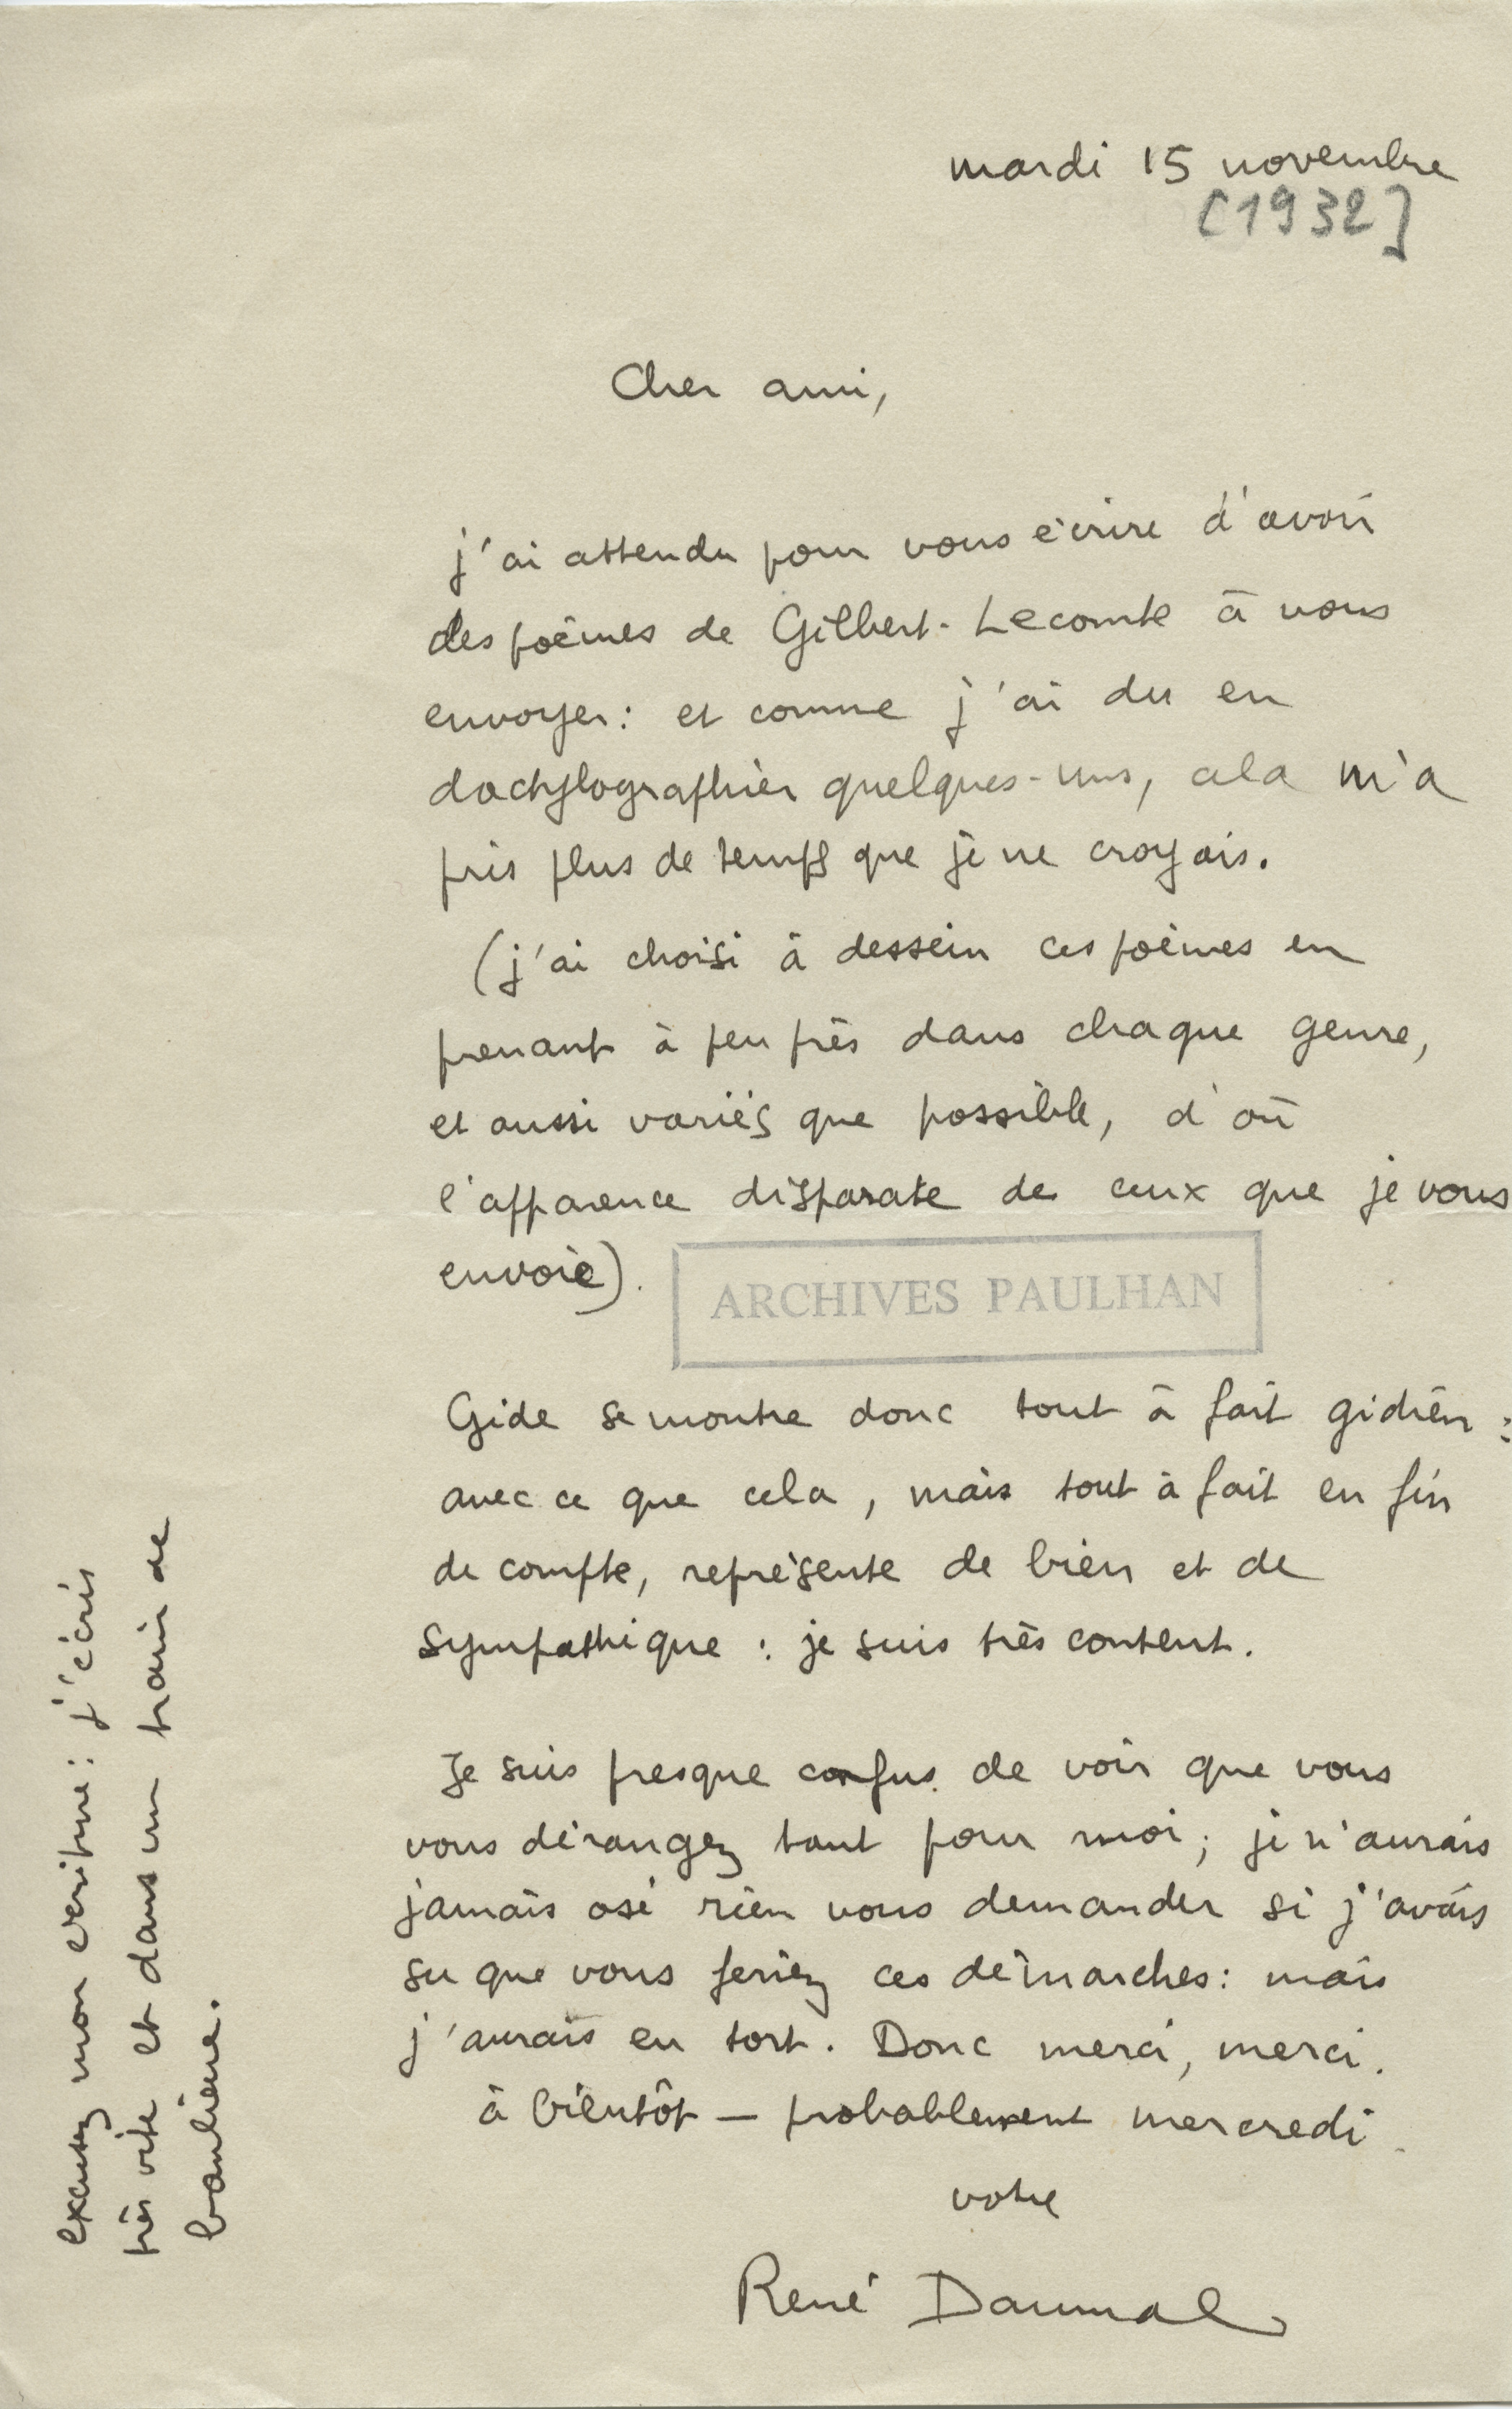 mardi 15 novembre
[1932]
Cher ami,
j'ai attendu pour vous écrire d'avoir
des poèmes de Gilbert-Lecomte à vous
envoyer : et comme j'ai du en
dactylographier quelques-uns, cela m'a
pris plus de temps que je ne croyais.
(j'ai choisi à dessein ces poèmes en
prenant à peu près dans chaque genre,
et aussi variés que possible, d'où
l'apparence disparate de ceux que je vous
envoie).
ARCHIVES PAULHAN
Gide se montre donc tout à fait gidien :
avec ce que cela, mais tout à fait en fin
de compte, représente de bien et de
sympathique : je suis très content.
Je suis presque confus de voir que vous
vous dérangez tant pour moi ; je n'aurais
jamais osé rien vous demander si j'avais
su que vous feriez ces démarches : mais
j'aurais eu tort. Donc merci, merci.
à bientôt — probablement mercredi
votre
René Daumal
excusez mon écriture : j'écris
très vite et dans un train de
banlieue.